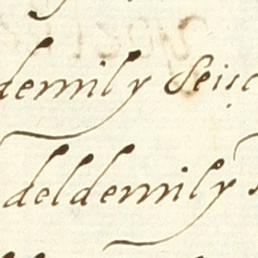 demil y seis
del demil y